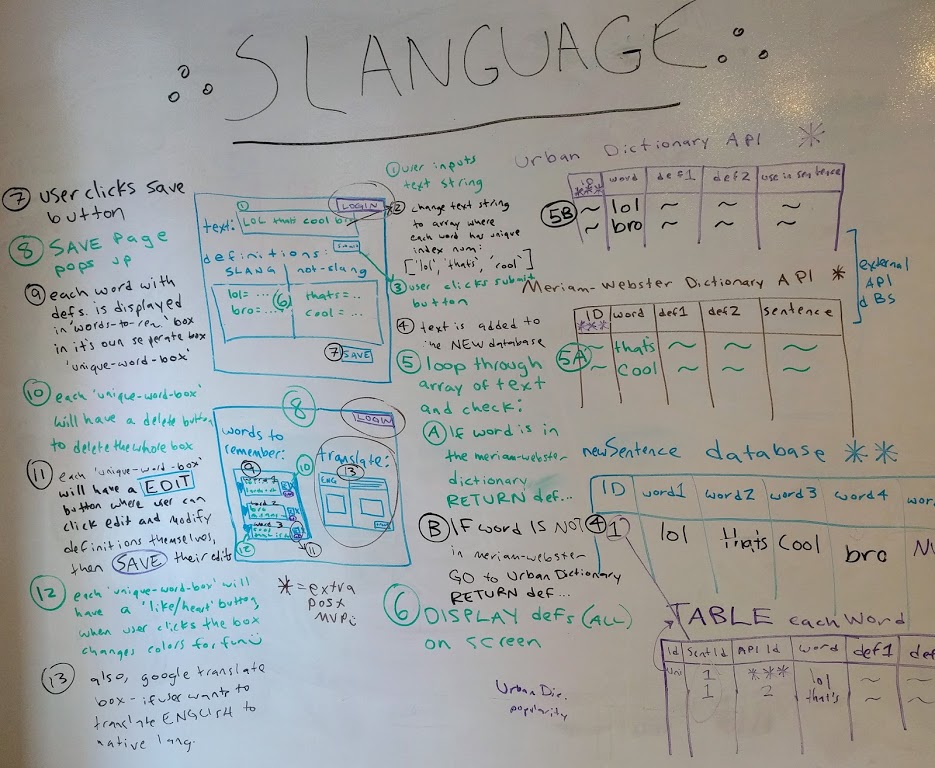 SLANGUAGE
⑦ user clicks save
button
⑧ SAVE page
pops up
⑨ each word with
defs. is displayed
in 'words-to-rem.' box
in it's own seperate box
'unique-word-box'
⑩ each 'unique-word-box'
will have a delete button
to delete the whole box
⑪ each 'unique-word-box'
will have a EDIT
button where user can
click edit and modify
definitions themselves,
then SAVE their edits
⑫ each 'unique-word-box' will
have a 'like/heart' button
when user clicks the box
changes colors for fun
⑬ also, google translate
box - if user wants to
translate ENGLISH to
native lang.
LOGIN
①
text: LOL thats cool bro
submit
definitions:
SLANG not-slang
lol= ... ⑥ thats= ..
bro= ... cool = ...
⑦ SAVE
⑧
LOGIN
words to
remember:
translate:
⑨ ⑩ ⑬
ENG
word 3
⑫ ⑪
* = extra
post
MVP
① user inputs
text string
② change text string
to array where
each word has unique
index num:
['lol', 'thats', 'cool']
③ user clicks submit
button
④ text is added to
the NEW database
⑤ loop through
array of text
and check:
Ⓐ If word is in
the meriam-webster
dictionary
RETURN def...
Ⓑ IF word IS NOT
in meriam-webster
GO to Urban Dictionary
RETURN def...
⑥ DISPLAY defs (ALL)
on screen
Urban Die.
popularity
Urban Dictionary API *
ID *** word def1 def2 use in sentence
5B ~ lol ~ ~ ~
~ bro ~ ~ ~
external
API
dBS
Meriam-Webster Dictionary API *
ID *** word def1 def2 sentence
5A ~ thats ~ ~ ~
~ cool ~ ~ ~
newSentence database **
ID word1 word2 word3 word4 wor
④ 1 lol thats cool bro NU
TABLE each Word
Id SentId API Id word def1 def
1 *** lol ~ ~
1 2 that's ~ ~